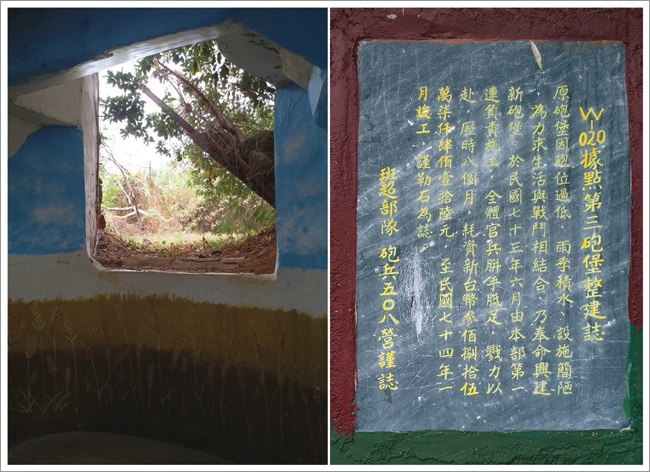 W-020據點第三砲堡整建誌
原砲堡因砲位過低，雨季積水，設施簡陋
，為力求生活與戰鬥相結合，乃奉命興建
新砲堡。於民國七十三年六月由本部第一
連負責施工，全體官兵胼手胝足，戮力以
赴，歷時八個月，耗資新台幣參佰捌拾伍
萬柒仟肆佰壹拾陸元，至民國七十四年一
月竣工，謹勒石為誌。
班超部隊 砲兵五〇八營謹誌